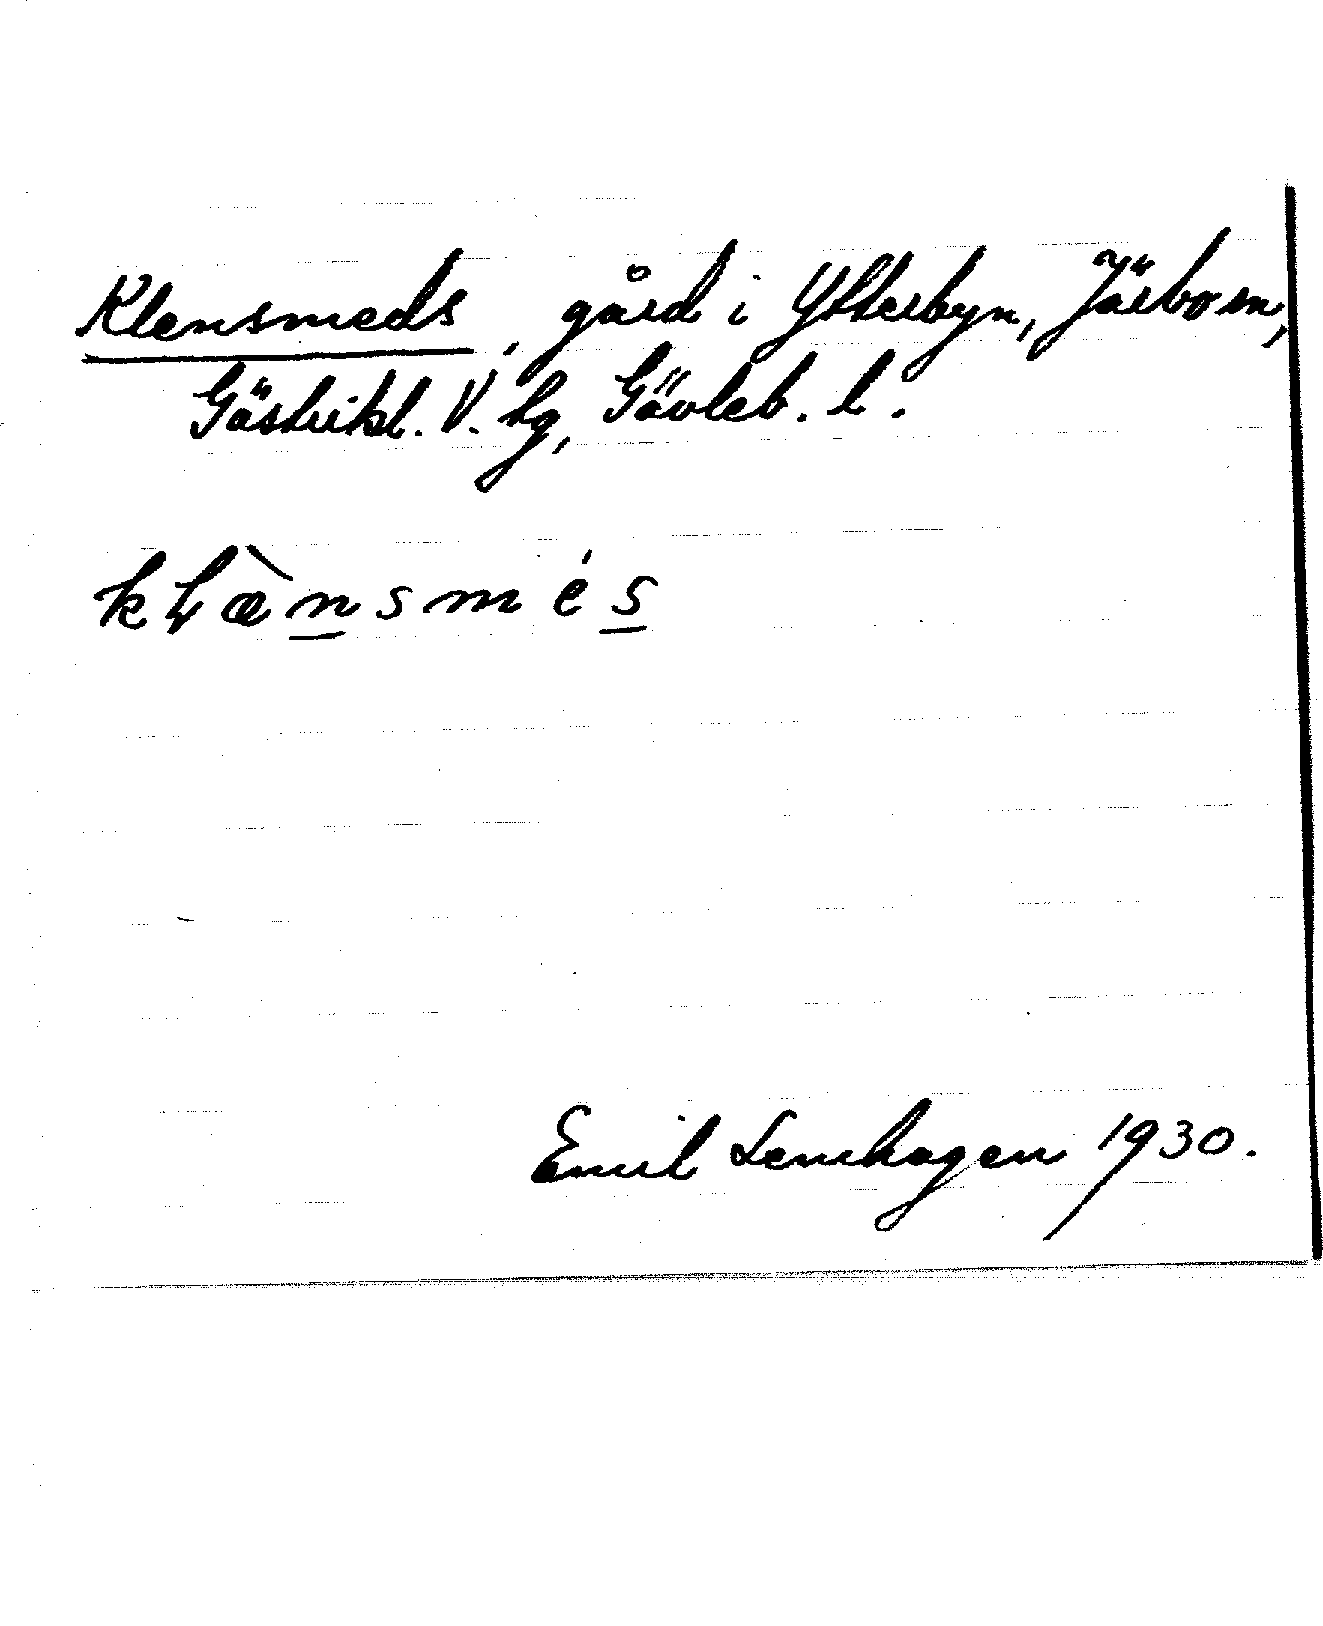 Klensmeds, gård i Ytterbyn, Järbo sn,
Gästrikl. V. tg, Gävleb. l.
kɫæ̀nsmés
Emil Lenhagen 1930.